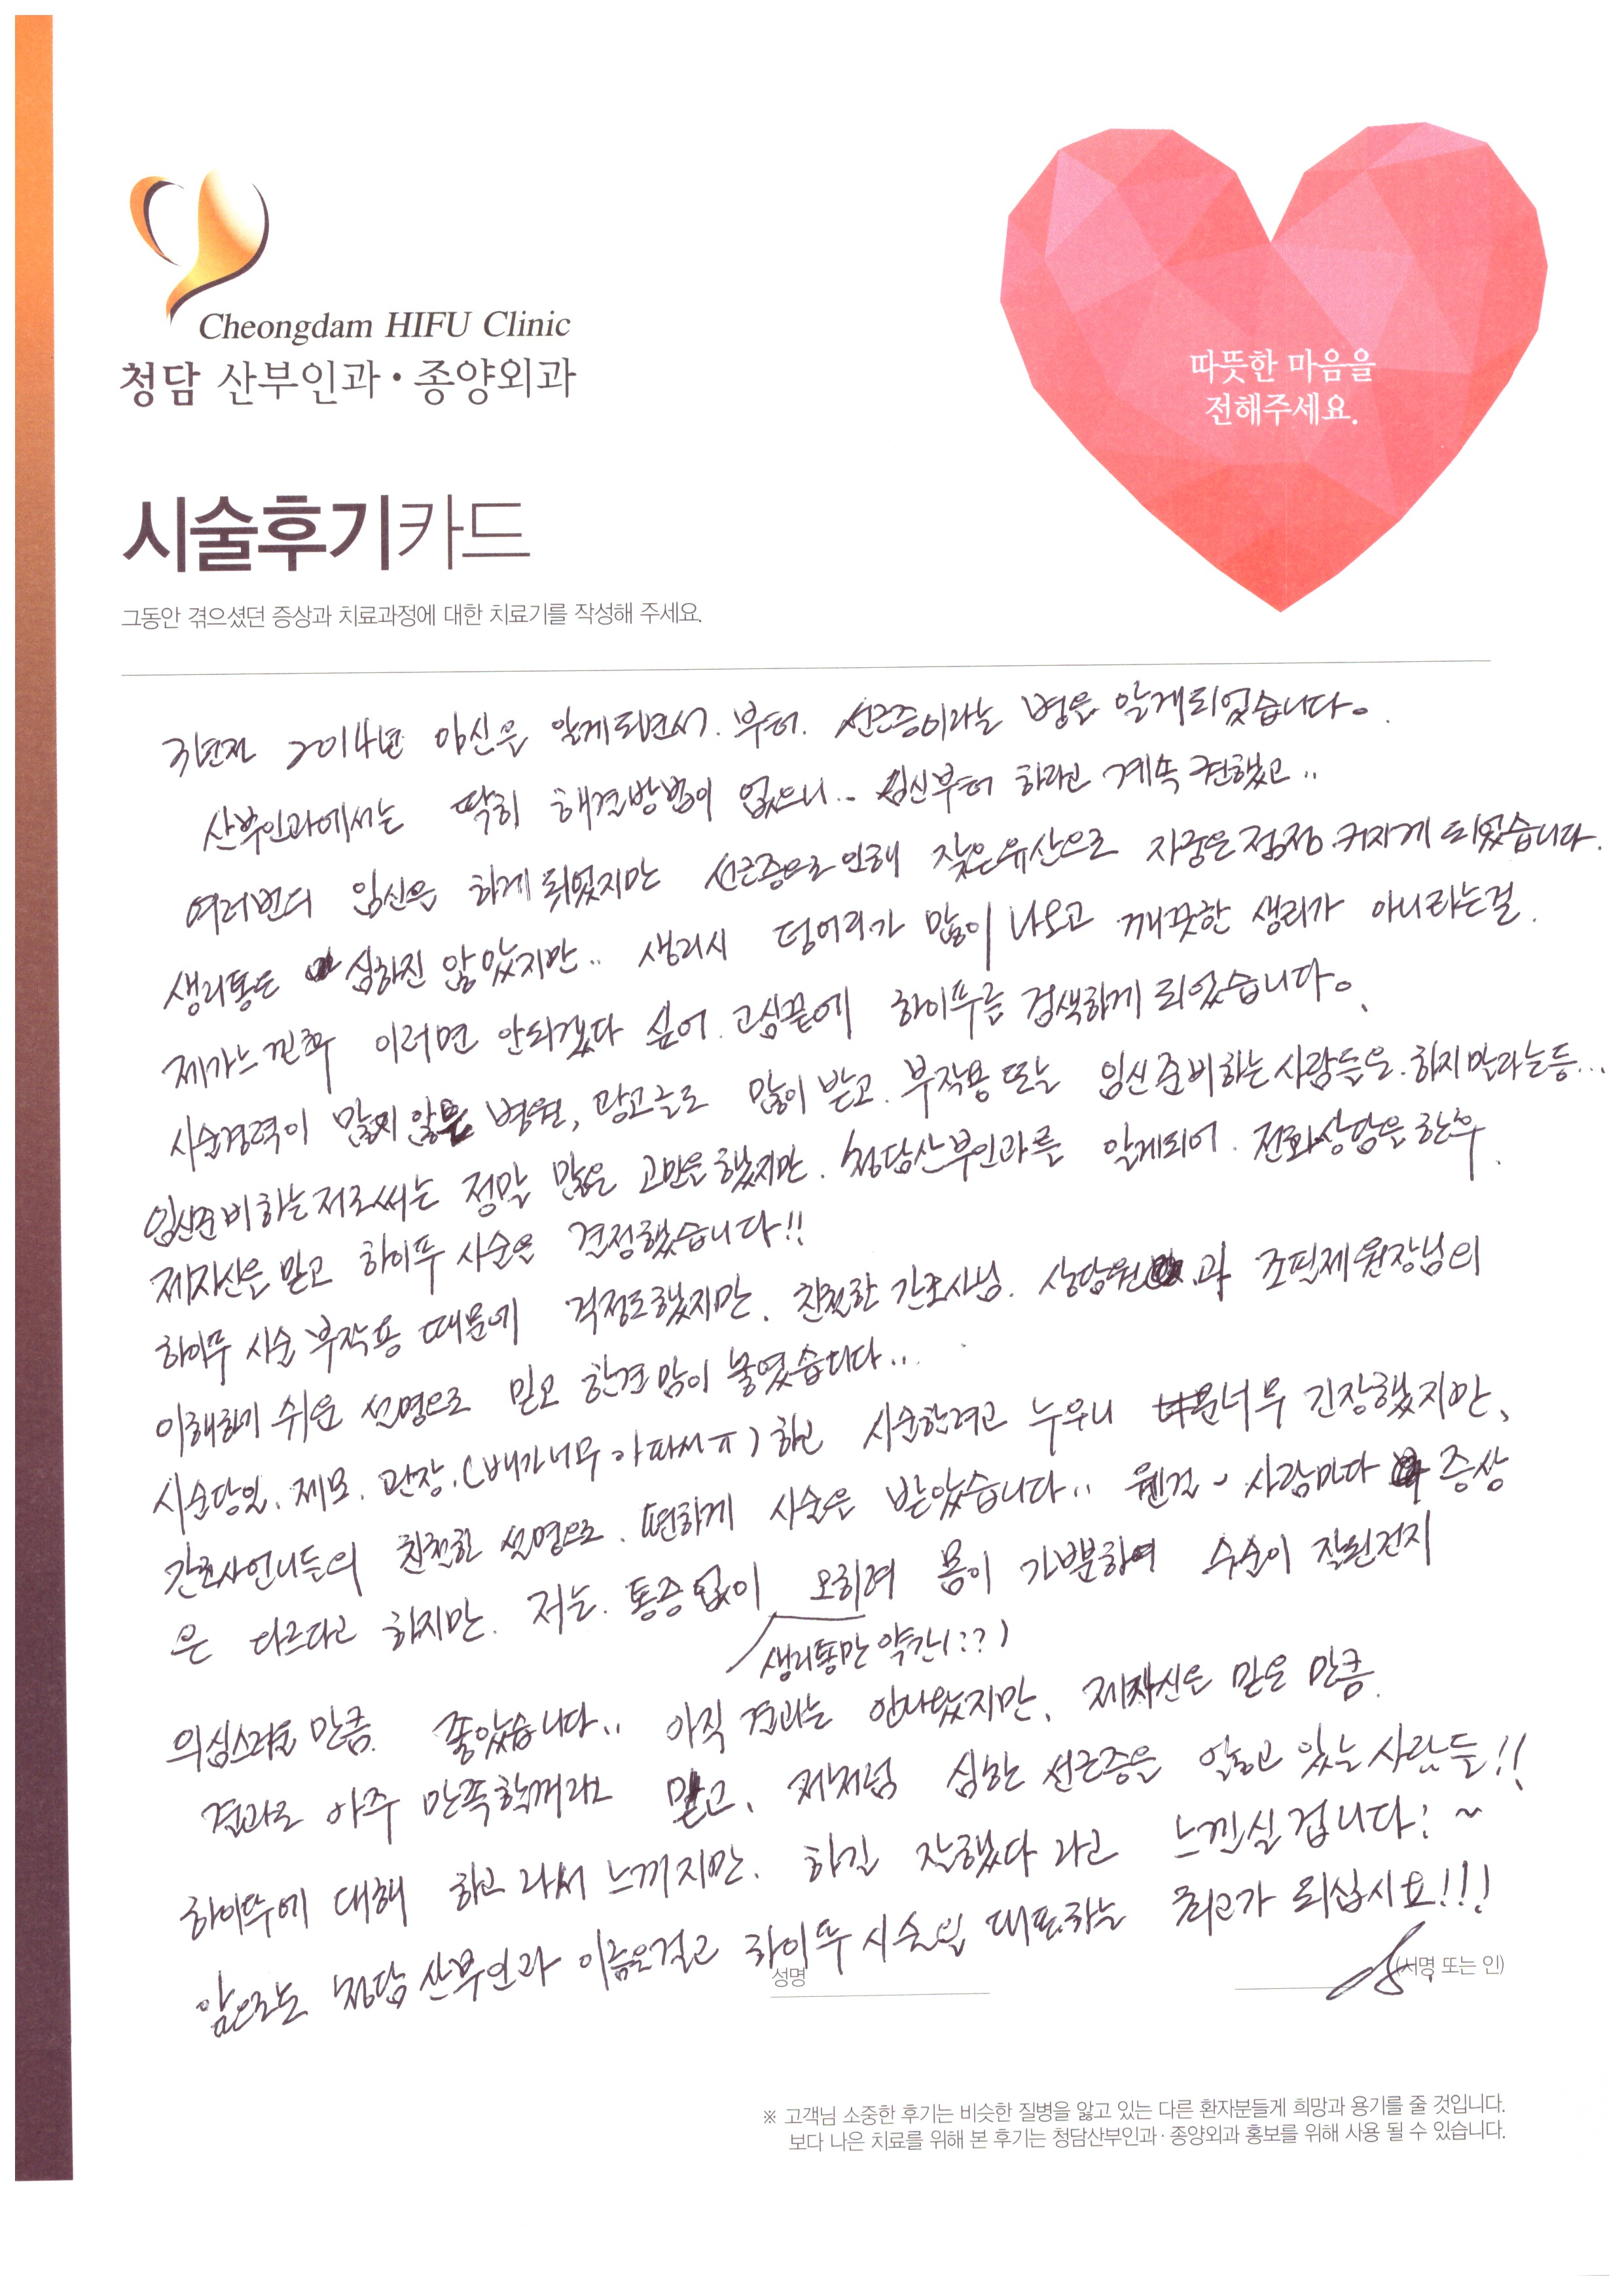 Cheongdam HIFU Clinic
청담 산부인과·종양외과
따뜻한 마음을
전해주세요.
시술후기카드
그동안 겪으셨던 증상과 치료과정에 대한 치료기를 작성해 주세요.
3년전 2014년 임신을 알게되면서.부터. 선근증이라는 병을 알게되었습니다.
산부인과에서는 딱히 해결방법이 없으니.. 임신부터 하라고 계속 권했고..
여러번의 임신은 하게 되었지만 선근증으로 인해 잦은유산으로 자궁은 점점 커지게 되었습니다.
생리통은 심하진 않았지만.. 생리시 덩어리가 많이 나오고 깨끗한 생리가 아니라는걸.
제가느낀후 이러면 안되겠다 싶어. 고심끝에 하이푸를 검색하게 되었습니다.
시술경력이 많지 않은 병원, 광고글로 많이 받고. 부작용 또는 임신준비하는 사람들은.하지말라는등...
임신준비하는저로써는 정말 많은 고민을 했지만. 청담산부인과를 알게되어. 전화상담을 한후.
제자신을 믿고 하이푸 시술을 결정했습니다!!
하이푸 시술 부작용 때문에 걱정도했지만. 친절한 간호사님. 상담원과 조필제원장님의
이해하기 쉬운 설명으로 믿고 한결 맘이 놓였습니다..
시술당일. 제모. 관장.(배가너무 아파서ㅠ) 하고 시술하려고 누우니 너무 긴장했지만,
간호사언니들의 친절한 설명으로. 편하게 시술을 받았습니다.. 웬걸~ 사람마다 증상
은 다르다고 하지만. 저는. 통증없이 오히려 몸이 가뿐하여 수술이 잘된건지
생리통만 약간(:?)
의심스러울 만큼. 좋았습니다.. 아직 결과는 안나왔지만, 제자신을 믿은 만큼.
결과로 아주 만족할꺼라고 믿고, 저처럼 심한 선근증을 앓고 있는 사람들!!
하이푸에 대해 하고 나서 느끼지만. 하길 잘했다 라고 느끼실 겁니다:~
앞으로도 청담산부인과 이름을걸고 하이푸 시술을 대표하는 최고가 되십시요!!!
성명 (서명 또는 인)
※ 고객님 소중한 후기는 비슷한 질병을 앓고 있는 다른 환자분들게 희망과 용기를 줄 것입니다.
보다 나은 치료를 위해 본 후기는 청담산부인과·종양외과 홍보를 위해 사용 될 수 있습니다.